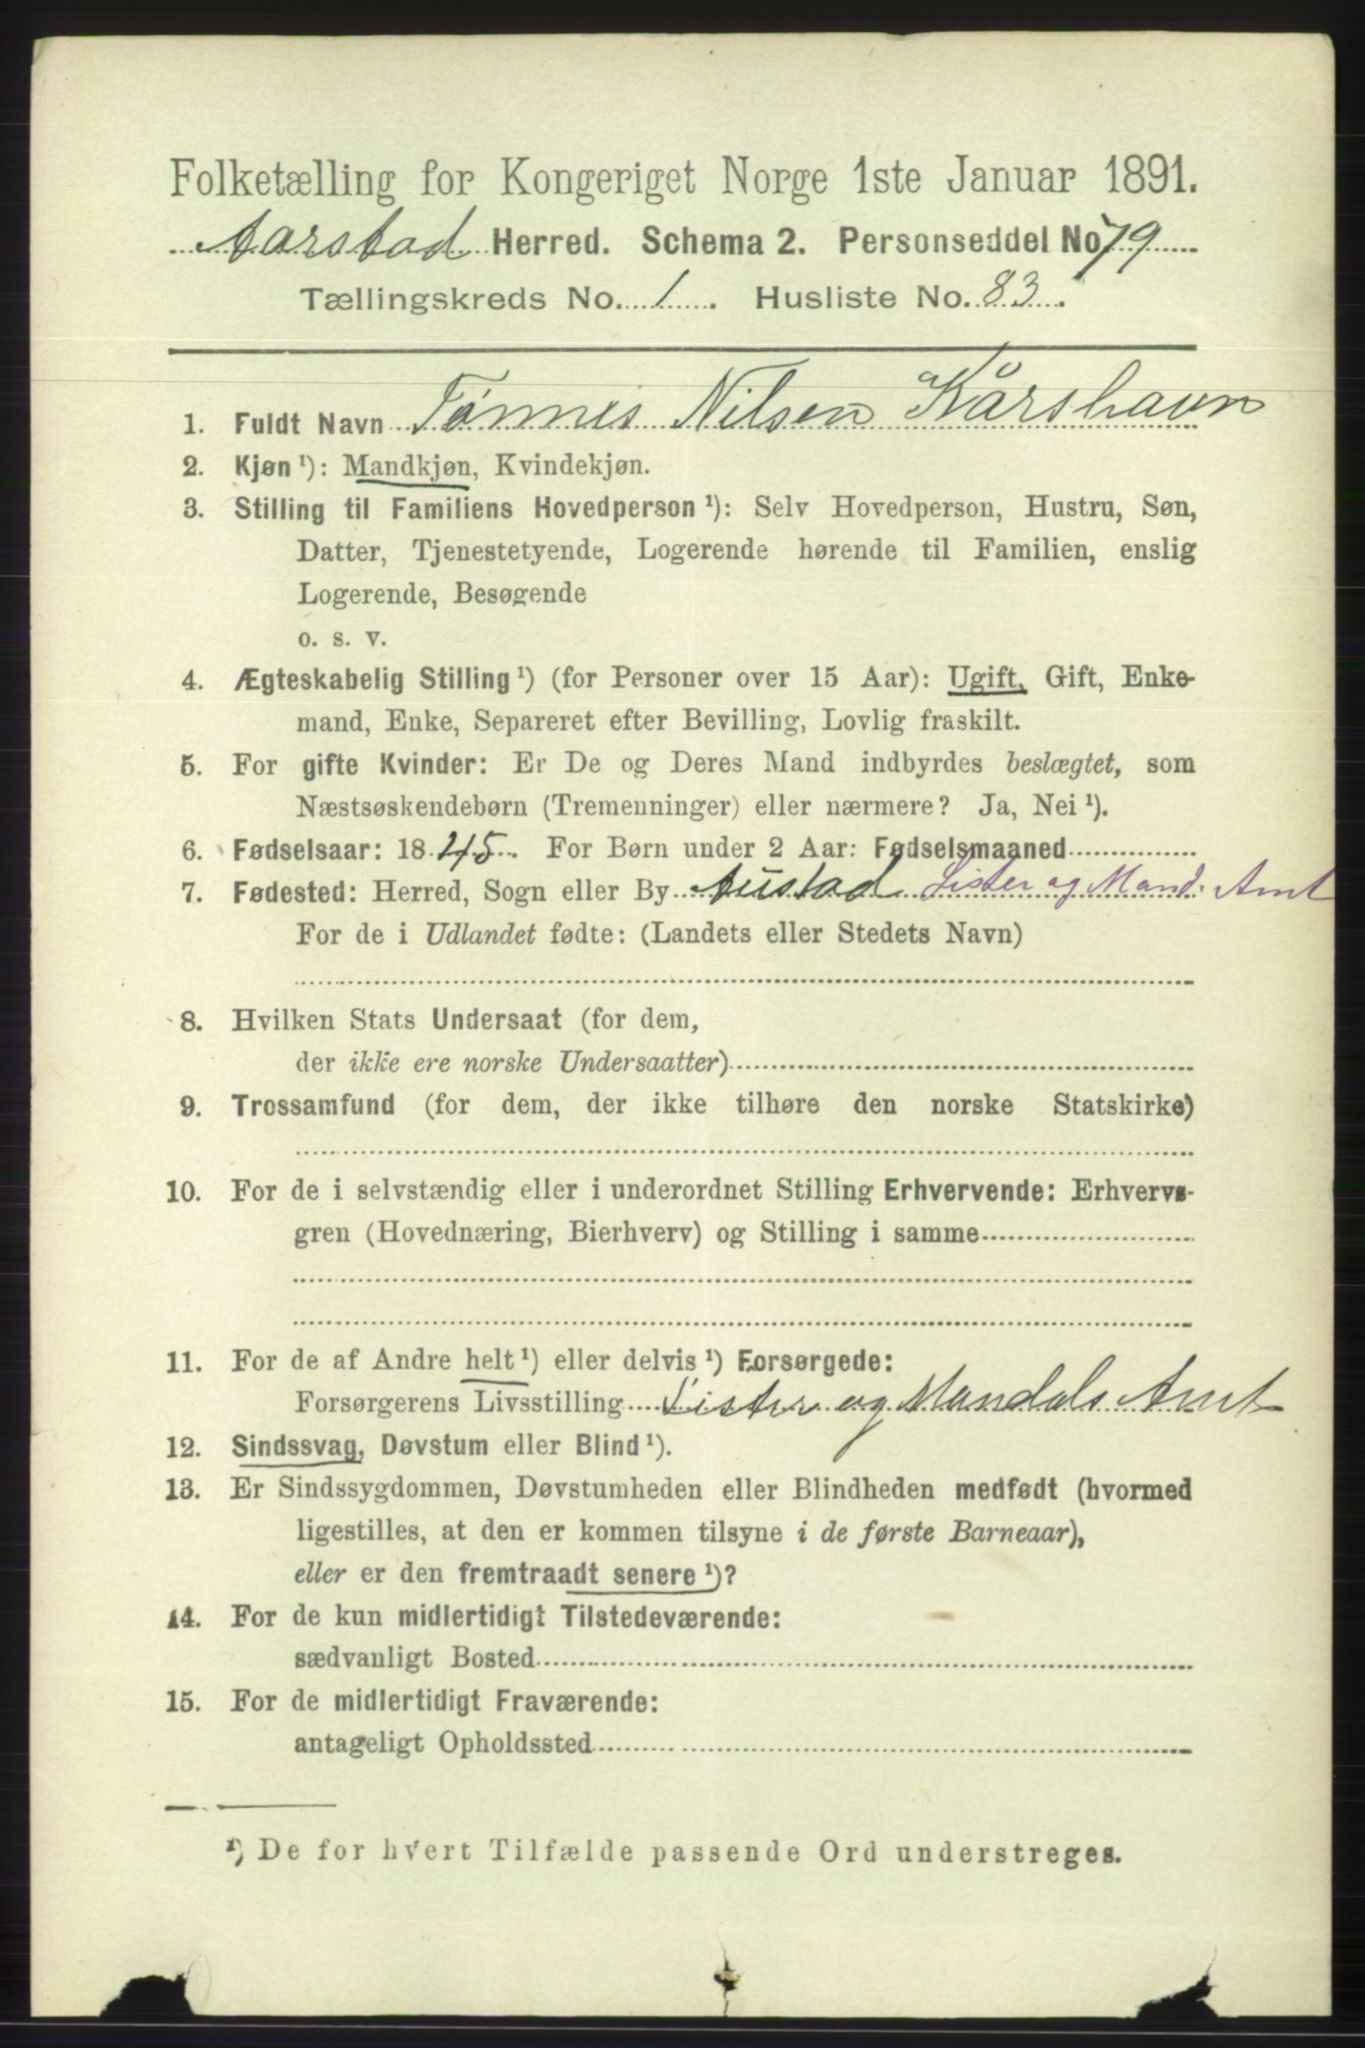 Folketælling for Kongeriget Norge 1ste Januar 1891.
Aarstad Herred. Schema 2. Personseddel No 79
Tællingskreds No. 1. Husliste No. 83.
1. Fuldt Navn Tønnes Nilsen Kårshavn
2. Kjøn ¹): Mandkjøn, Kvindekjøn.
3. Stilling til Familiens Hovedperson ¹): Selv Hovedperson, Hustru, Søn,
Datter, Tjenestetyende, Logerende hørende til Familien, enslig
Logerende, Besøgende
o. s. v.
4. Ægteskabelig Stilling ¹) (for Personer over 15 Aar): Ugift, Gift, Enke-
mand, Enke, Separeret efter Bevilling, Lovlig fraskilt.
5. For gifte Kvinder: Er De og Deres Mand indbyrdes beslægtet, som
Næstsøskendebørn (Tremenninger) eller nærmere? Ja, Nei ¹).
6. Fødselsaar: 1845. For Børn under 2 Aar: Fødselsmaaned
7. Fødested: Herred, Sogn eller By Austad Lister og Mand. Amt
For de i Udlandet fødte: (Landets eller Stedets Navn)
8. Hvilken Stats Undersaat (for dem,
der ikke ere norske Undersaatter)
9. Trossamfund (for dem, der ikke tilhøre den norske Statskirke)
10. For de i selvstændig eller i underordnet Stilling Erhvervende: Erhvervs-
gren (Hovednæring, Bierhverv) og Stilling i samme
11. For de af Andre helt ¹) eller delvis ¹) Forsørgede:
Forsørgerens Livsstilling Lister og Mandals Amt
12. Sindssvag, Døvstum eller Blind ¹).
13. Er Sindssygdommen, Døvstumheden eller Blindheden medfødt (hvormed
ligestilles, at den er kommen tilsyne i de første Barneaar),
eller er den fremtraadt senere ¹)?
14. For de kun midlertidigt Tilstedeværende:
sædvanligt Bosted
15. For de midlertidigt Fraværende:
antageligt Opholdssted
¹) De for hvert Tilfælde passende Ord understreges.